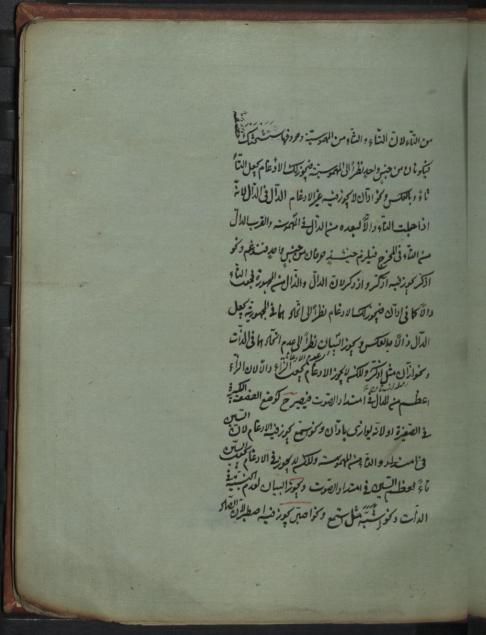 من التاء لان التاء والثاء من المهموسية وحروفها ستشحثك
فيكونان من جنس واحد نظرا الى المهموسية فيجوز لك الادغام بجعل التاء
ثاء وبالعكس ونحو ادّان لا يجوز فيه غير الادغام الدال في الدال لانه
اذا جعلت التاء دالا لبعده من الدال في المهموسية والقرب الدال
من التاء في المخرج فيلزم حينئذ حرفان من جنس واحد فتدغم ونحو
اذكر يجوز فيه اذكر واذدكر لان الدال والذال من المجهورة فجعلت التاء
دالا كما في ادّان فيجوز لك الادغام نظرا الى اتحادهما في المجهورية بجعل
الدال ذالا وبالعكس ويجوز البيان نظرا الى عدم اتحادهما في الذات
ونحو ازّان مثل اذكر ولكنه لا يجوز الادغام بجعل الزاء دالا لان الزاء
اعظم من الدال في امتداد الصوت فيصير ح كوضع القصعة الكبيرة
في الصغيرة او لانه يوازى بادّان ونحو اسمع يجوز فيه الادغام لان السين
والتاء من المهموسة ولكن لا يجوز فيه الادغام بجعل السين
تاء لعظم السين في امتداد الصوت ويجوز البيان لعدم الجنسية في
الذات ونحو اشبه مثل اسمع ونحو اصبر يجوز فيه اصطبر لان الصاد